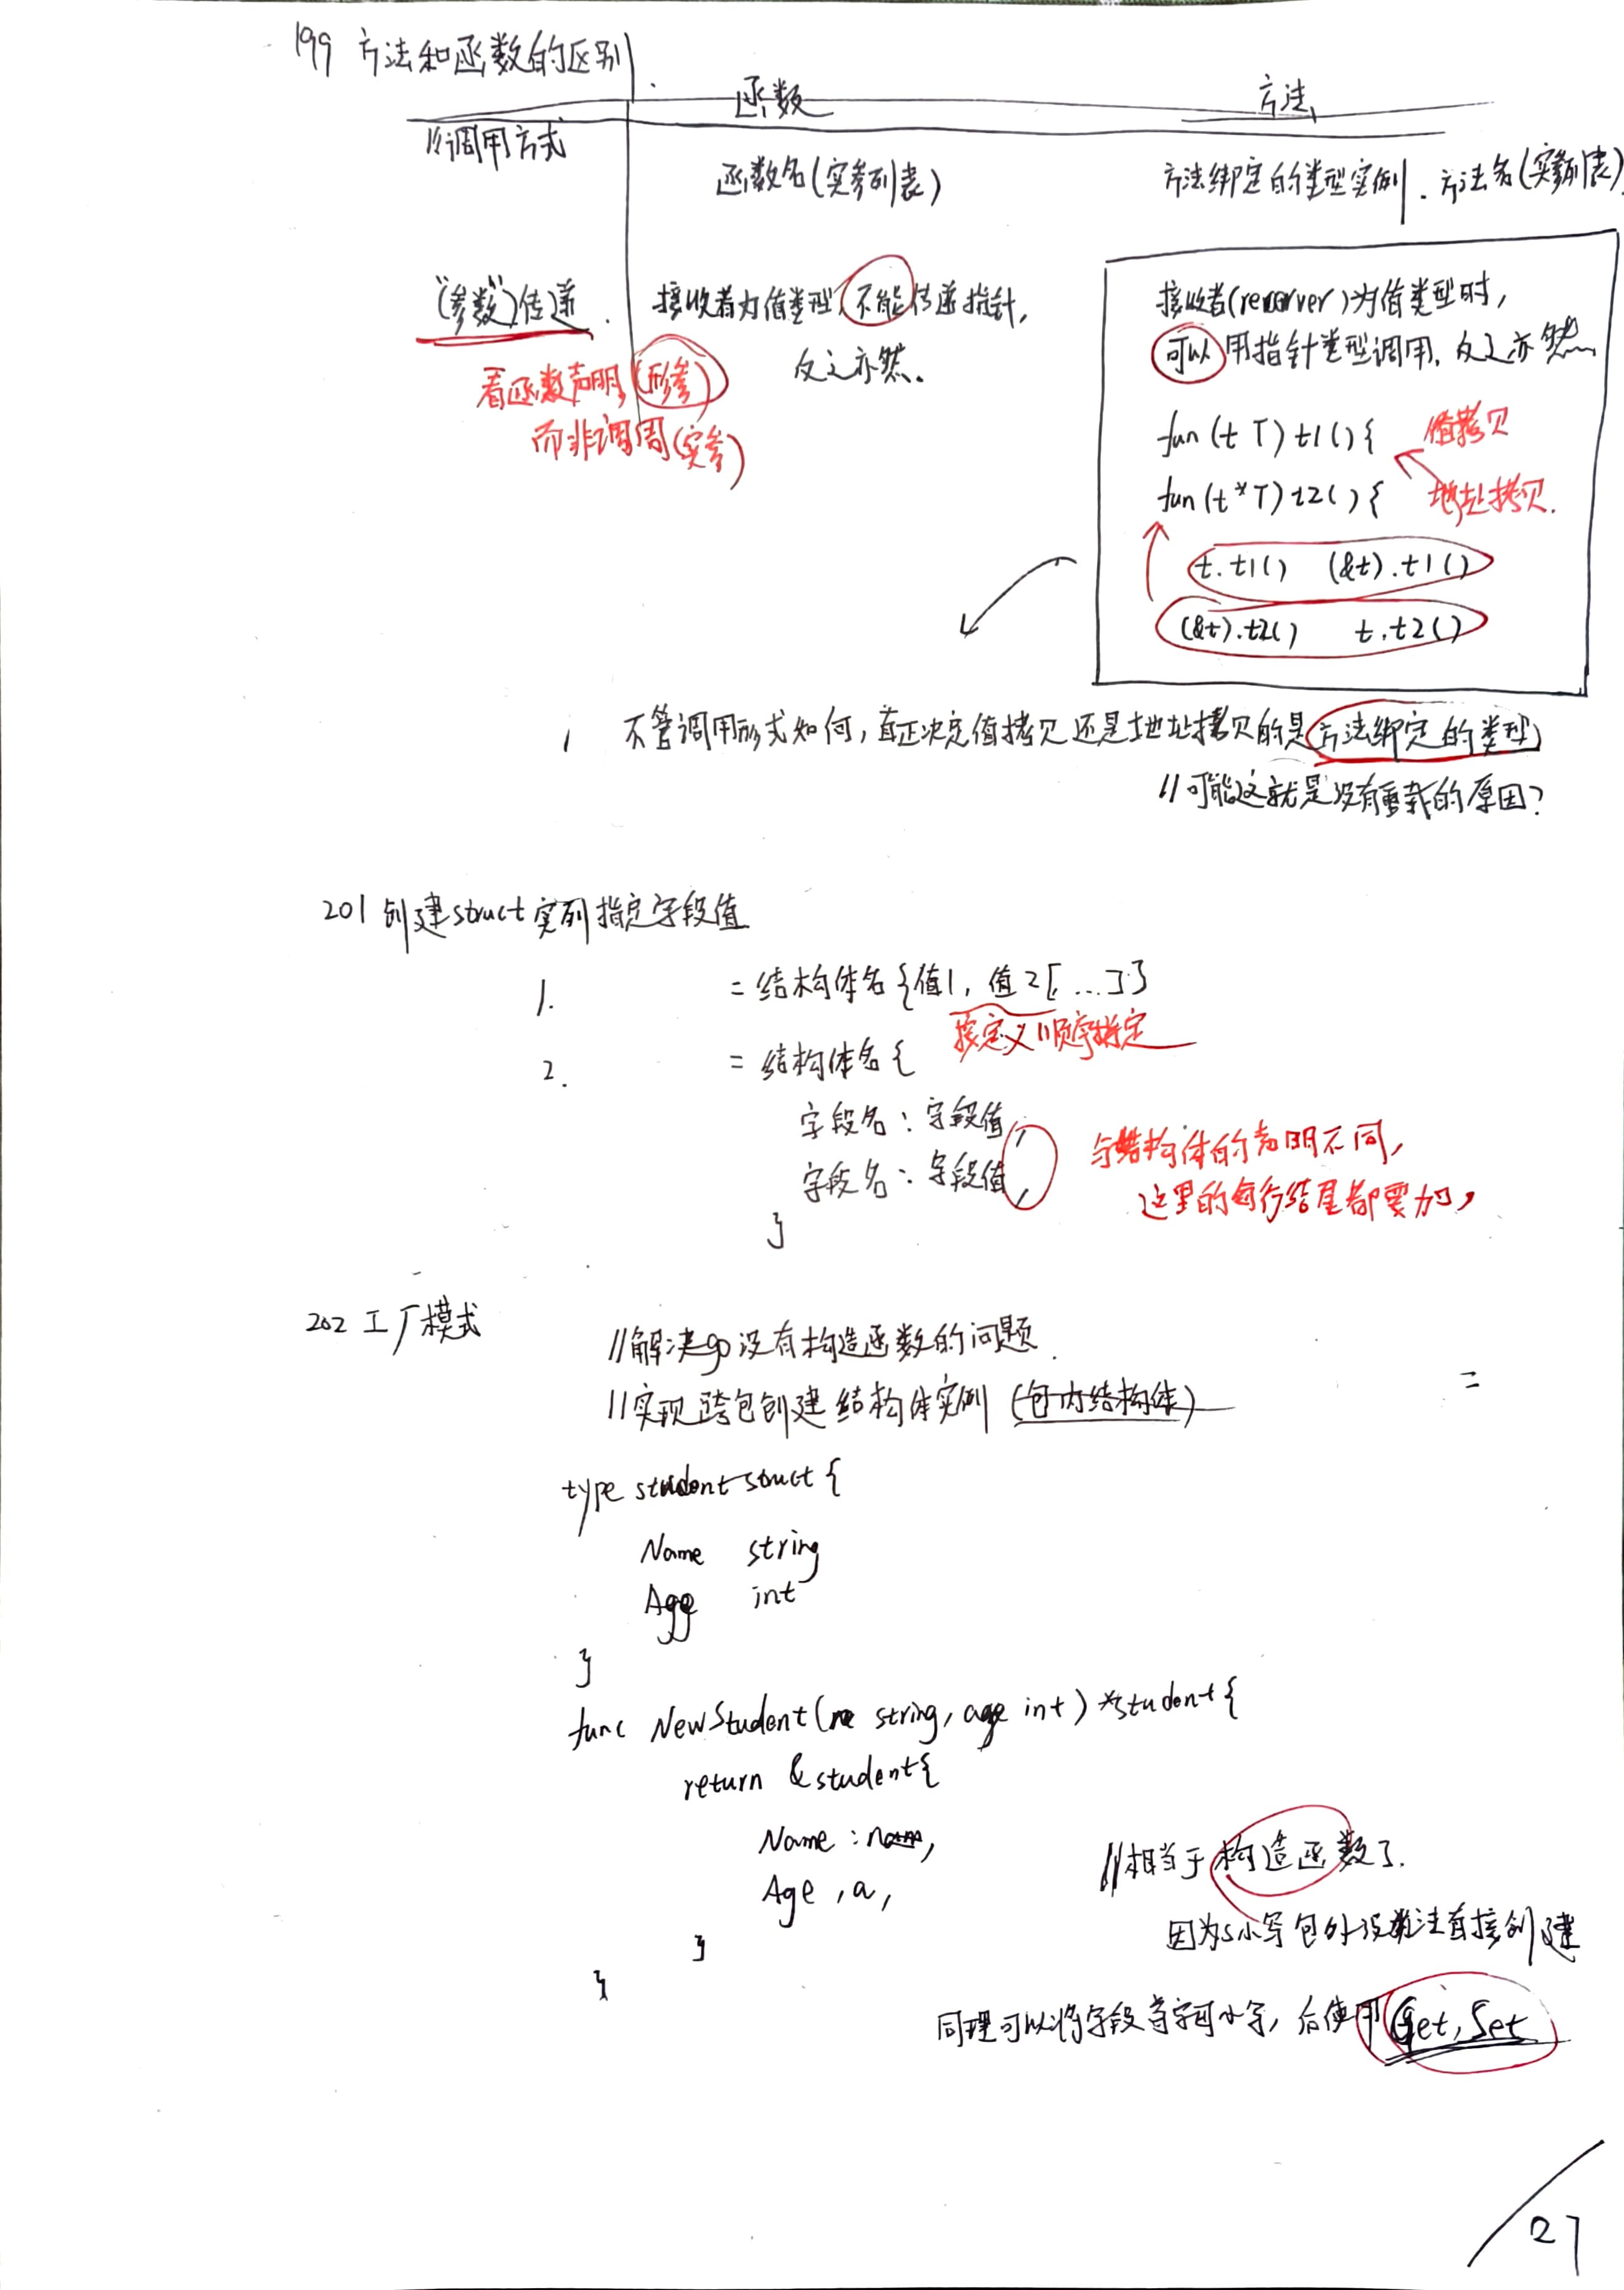 199 方法和函数的区别
函数 方法
//调用方式 函数名(实参列表) 方法绑定的类型实例.方法名(实参列表)
"(参数)"传递 接收者为值类型,不能传递指针,
反之亦然.
看函数声明(形参)
而非调用(实参)
接收者(receiver)为值类型时,
可以用指针类型调用,反之亦然
fun (t T) t1() { 值拷贝
fun (t *T) t2() { 地址拷贝.
t.t1() (&t).t1()
(&t).t2() t.t2()
不管调用形式如何,真正决定值拷贝还是地址拷贝的是方法绑定的类型
//可能这就是没有重载的原因?
201 创建struct实列指定字段值
1. = 结构体名{值1, 值2[, ...]}
按定义顺序指定
2. = 结构体名{
字段名: 字段值,
字段名: 字段值,
}
与结构体的声明不同,
这里的每行结尾都要加,
202 工厂模式
//解决go没有构造函数的问题.
//实现跨包创建结构体实例(包内结构体)
=
type student struct {
Name string
Age int
}
func NewStudent(n string, age int) *student {
return &student{
Name : name,
Age , a,
}
}
//相当于构造函数了.
因为s小写包外没办法直接创建
同理可以将字段首字母小写, 后使用Get, Set
27